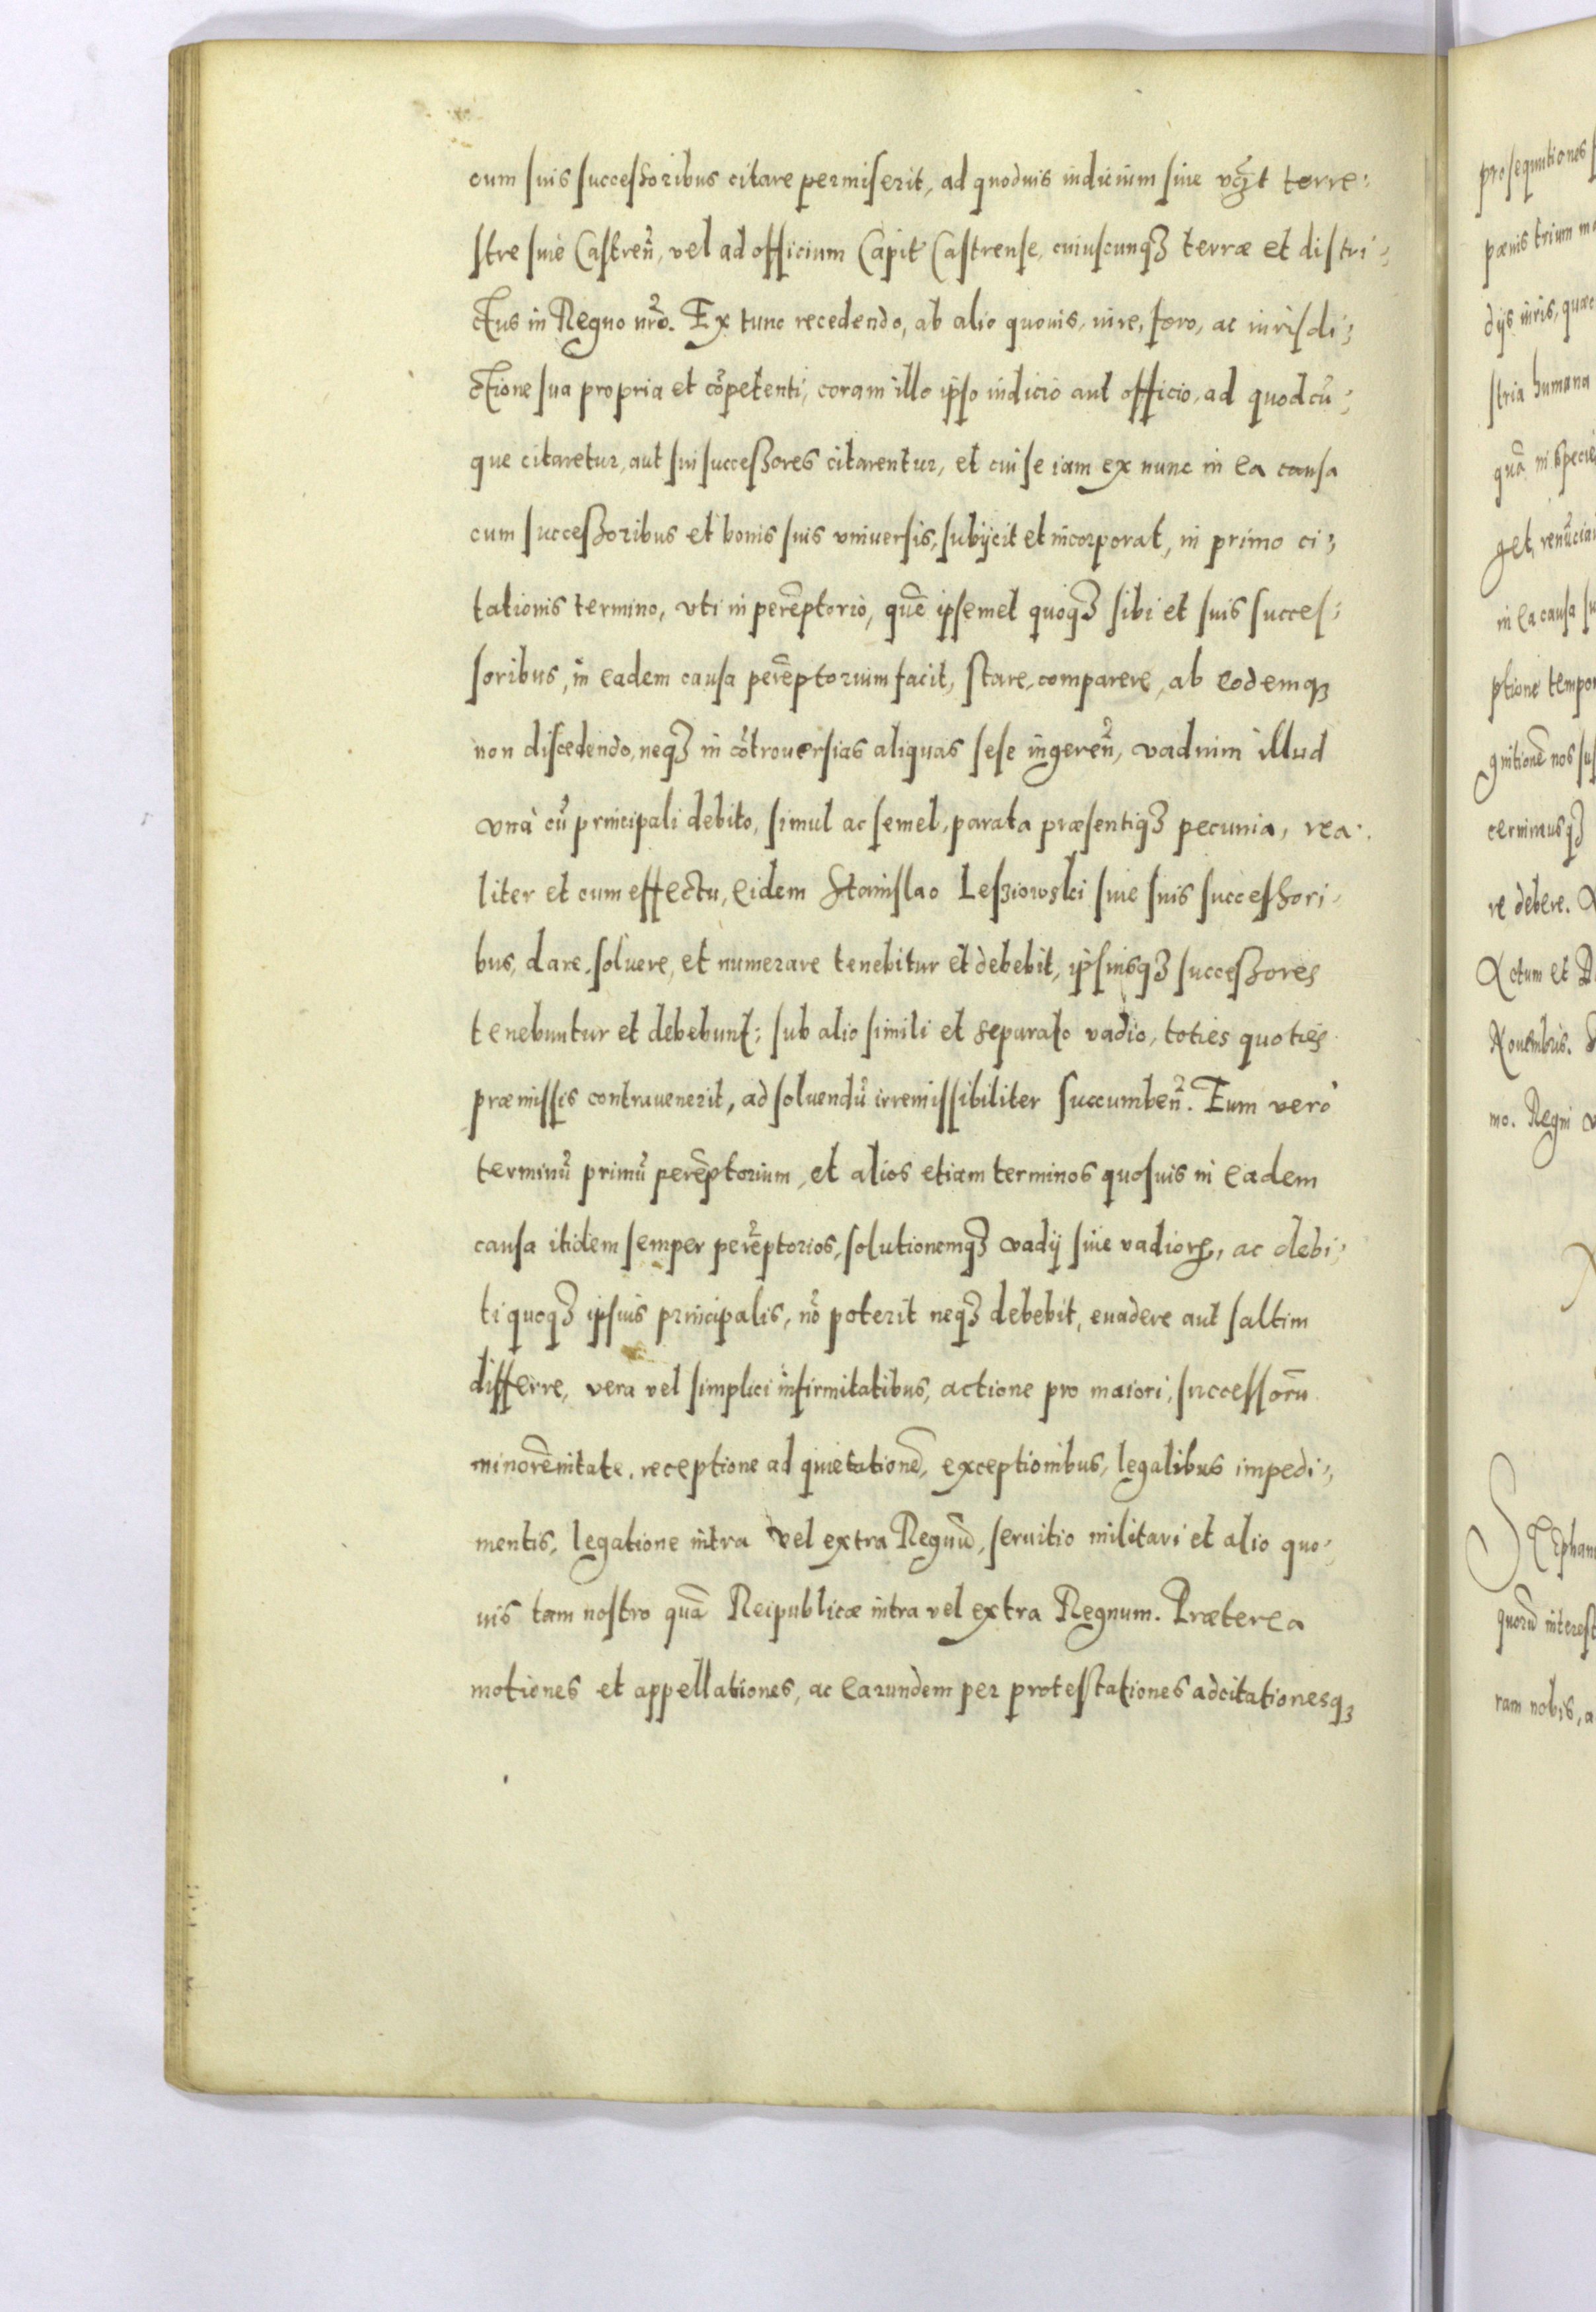 cum suis successoribus citare permiserit, ad quoduis iudicium siue terre:
stre siue Castreñ, vel ad officium Capit Castrense, cuiuscunqȝ terræ et distri:
ctus in Regno nrõ. Ex tunc recedendo, ab alio quouis, iure, foro, ac iurisdi:
ctione sua propria et cõpetenti, coram illo ipso iudicio aut officio, ad quodcũ:
que citaretur, aut sui successores citarentur, et cui se iam ex nunc in ea causa
cum successoribus et bonis suis vniuersis, subijcit et incorporat, in primo ci:
tationis termino, vti in perẽptorio, quẽ ipsemet quoqȝ sibi et suis succes:
soribus, in eadem causa perẽptorium facit, stare, comparere, ab eodemqȝ
non discedendo, neqȝ in cõtrouersias aliquas sese ingereñ, vadium illud
vnà cũ principali debito, simul ac semel, parata præsentiqȝ pecunia, rea:
liter et cum effectu, eidem Stanislao Lesziowski siue suis successori:
bus, dare, soluere, et numerare tenebitur et debebit, ipsiusqȝ successores
tenebuntur et debebunt: sub alio simili et separato vadio, toties quoties
præmissis contrauenerit, ad soluendũ irremissibiliter succumbeñ. Eum verò
terminũ primũ perẽptorium, et alios etiam terminos quosuis in eadem
causa itidem semper perẽptorios, solutionemqȝ vadij siue vadiorꝝ, ac debi:
ti quoqȝ ipsius principalis, nõ poterit neqȝ debebit, euadere aut saltim
differre, vera vel simplici infirmitatibus, actione pro maiori, successorũ
minorẽnitate, receptione ad quietationẽ, exceptionibus, legalibus impedi:
mentis, legatione intra vel extra Regnũ, seruitio militari et alio quo:
uis tam nostro quã Reipublicæ intra vel extra Regnum. Præterea
motiones et appellationes, ac earundem per protestationes adcitationesqȝ
prosequutiones
pœnis trium
dijs iuris,
stria humana
quã in specie
get,
in ea causa
ptione
gnitionẽ nos
cernimusqȝ
re debere.
Actum et
Nouembris.
mo. Regni
quorũ interest
ram nobis,